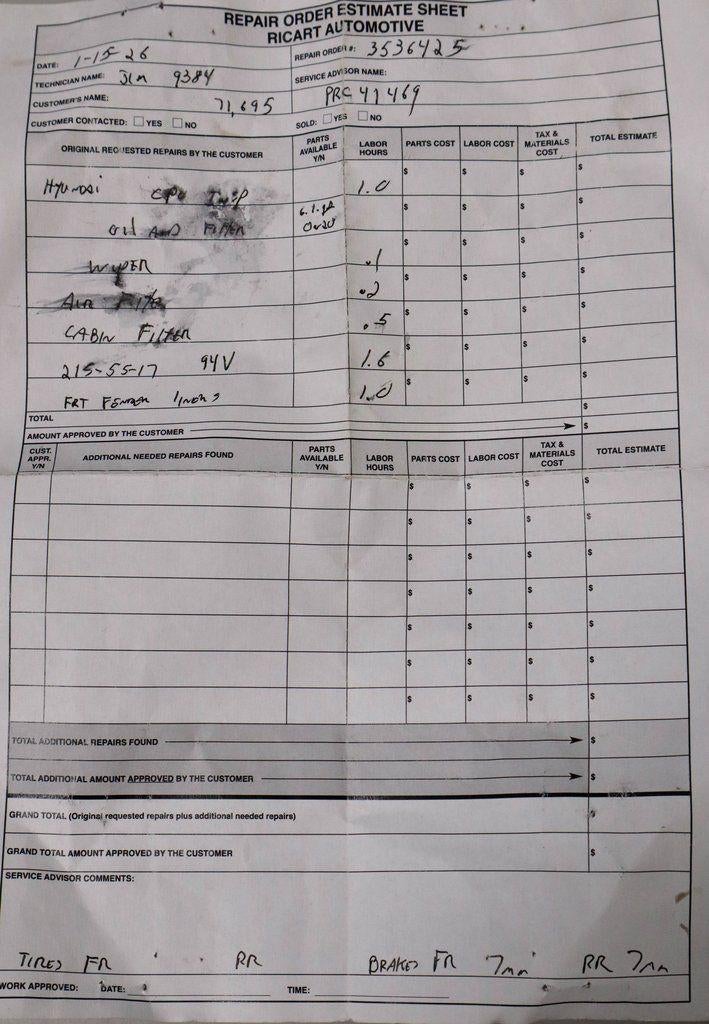 REPAIR ORDER ESTIMATE SHEET
RICART AUTOMOTIVE
DATE: 1-15-26
REPAIR ORDER #: 3536425
TECHNICIAN NAME: JIM 9384
SERVICE ADVISOR NAME:
CUSTOMER'S NAME: 71,695
PRC 41469
CUSTOMER CONTACTED: YES NO
SOLD: YES NO
ORIGINAL REQUESTED REPAIRS BY THE CUSTOMER PARTS AVAILABLE Y/N LABOR HOURS PARTS COST LABOR COST TAX & MATERIALS COST TOTAL ESTIMATE
HYUNDAI CPO INSP 1.0 $ $ $ $
Oil AND FILTER 0W20 $ $ $ $
WYPER .1 $ $ $ $
AIR FILTER .2 $ $ $ $
CABIN FILTER .5 $ $ $ $
215-55-17 94V 1.6 $ $ $ $
FRT FENDER LINERS 1.0 $ $ $ $
TOTAL $
AMOUNT APPROVED BY THE CUSTOMER $
CUST. APPR. Y/N ADDITIONAL NEEDED REPAIRS FOUND PARTS AVAILABLE Y/N LABOR HOURS PARTS COST LABOR COST TAX & MATERIALS COST TOTAL ESTIMATE
$ $ $ $
$ $ $ $
$ $ $ $
$ $ $ $
$ $ $ $
$ $ $ $
$ $ $ $
TOTAL ADDITIONAL REPAIRS FOUND $
TOTAL ADDITIONAL AMOUNT APPROVED BY THE CUSTOMER $
GRAND TOTAL (Original requested repairs plus additional needed repairs) $
GRAND TOTAL AMOUNT APPROVED BY THE CUSTOMER $
SERVICE ADVISOR COMMENTS:
TIRES FR RR BRAKES FR 7mm RR 7mm
WORK APPROVED: DATE: TIME: